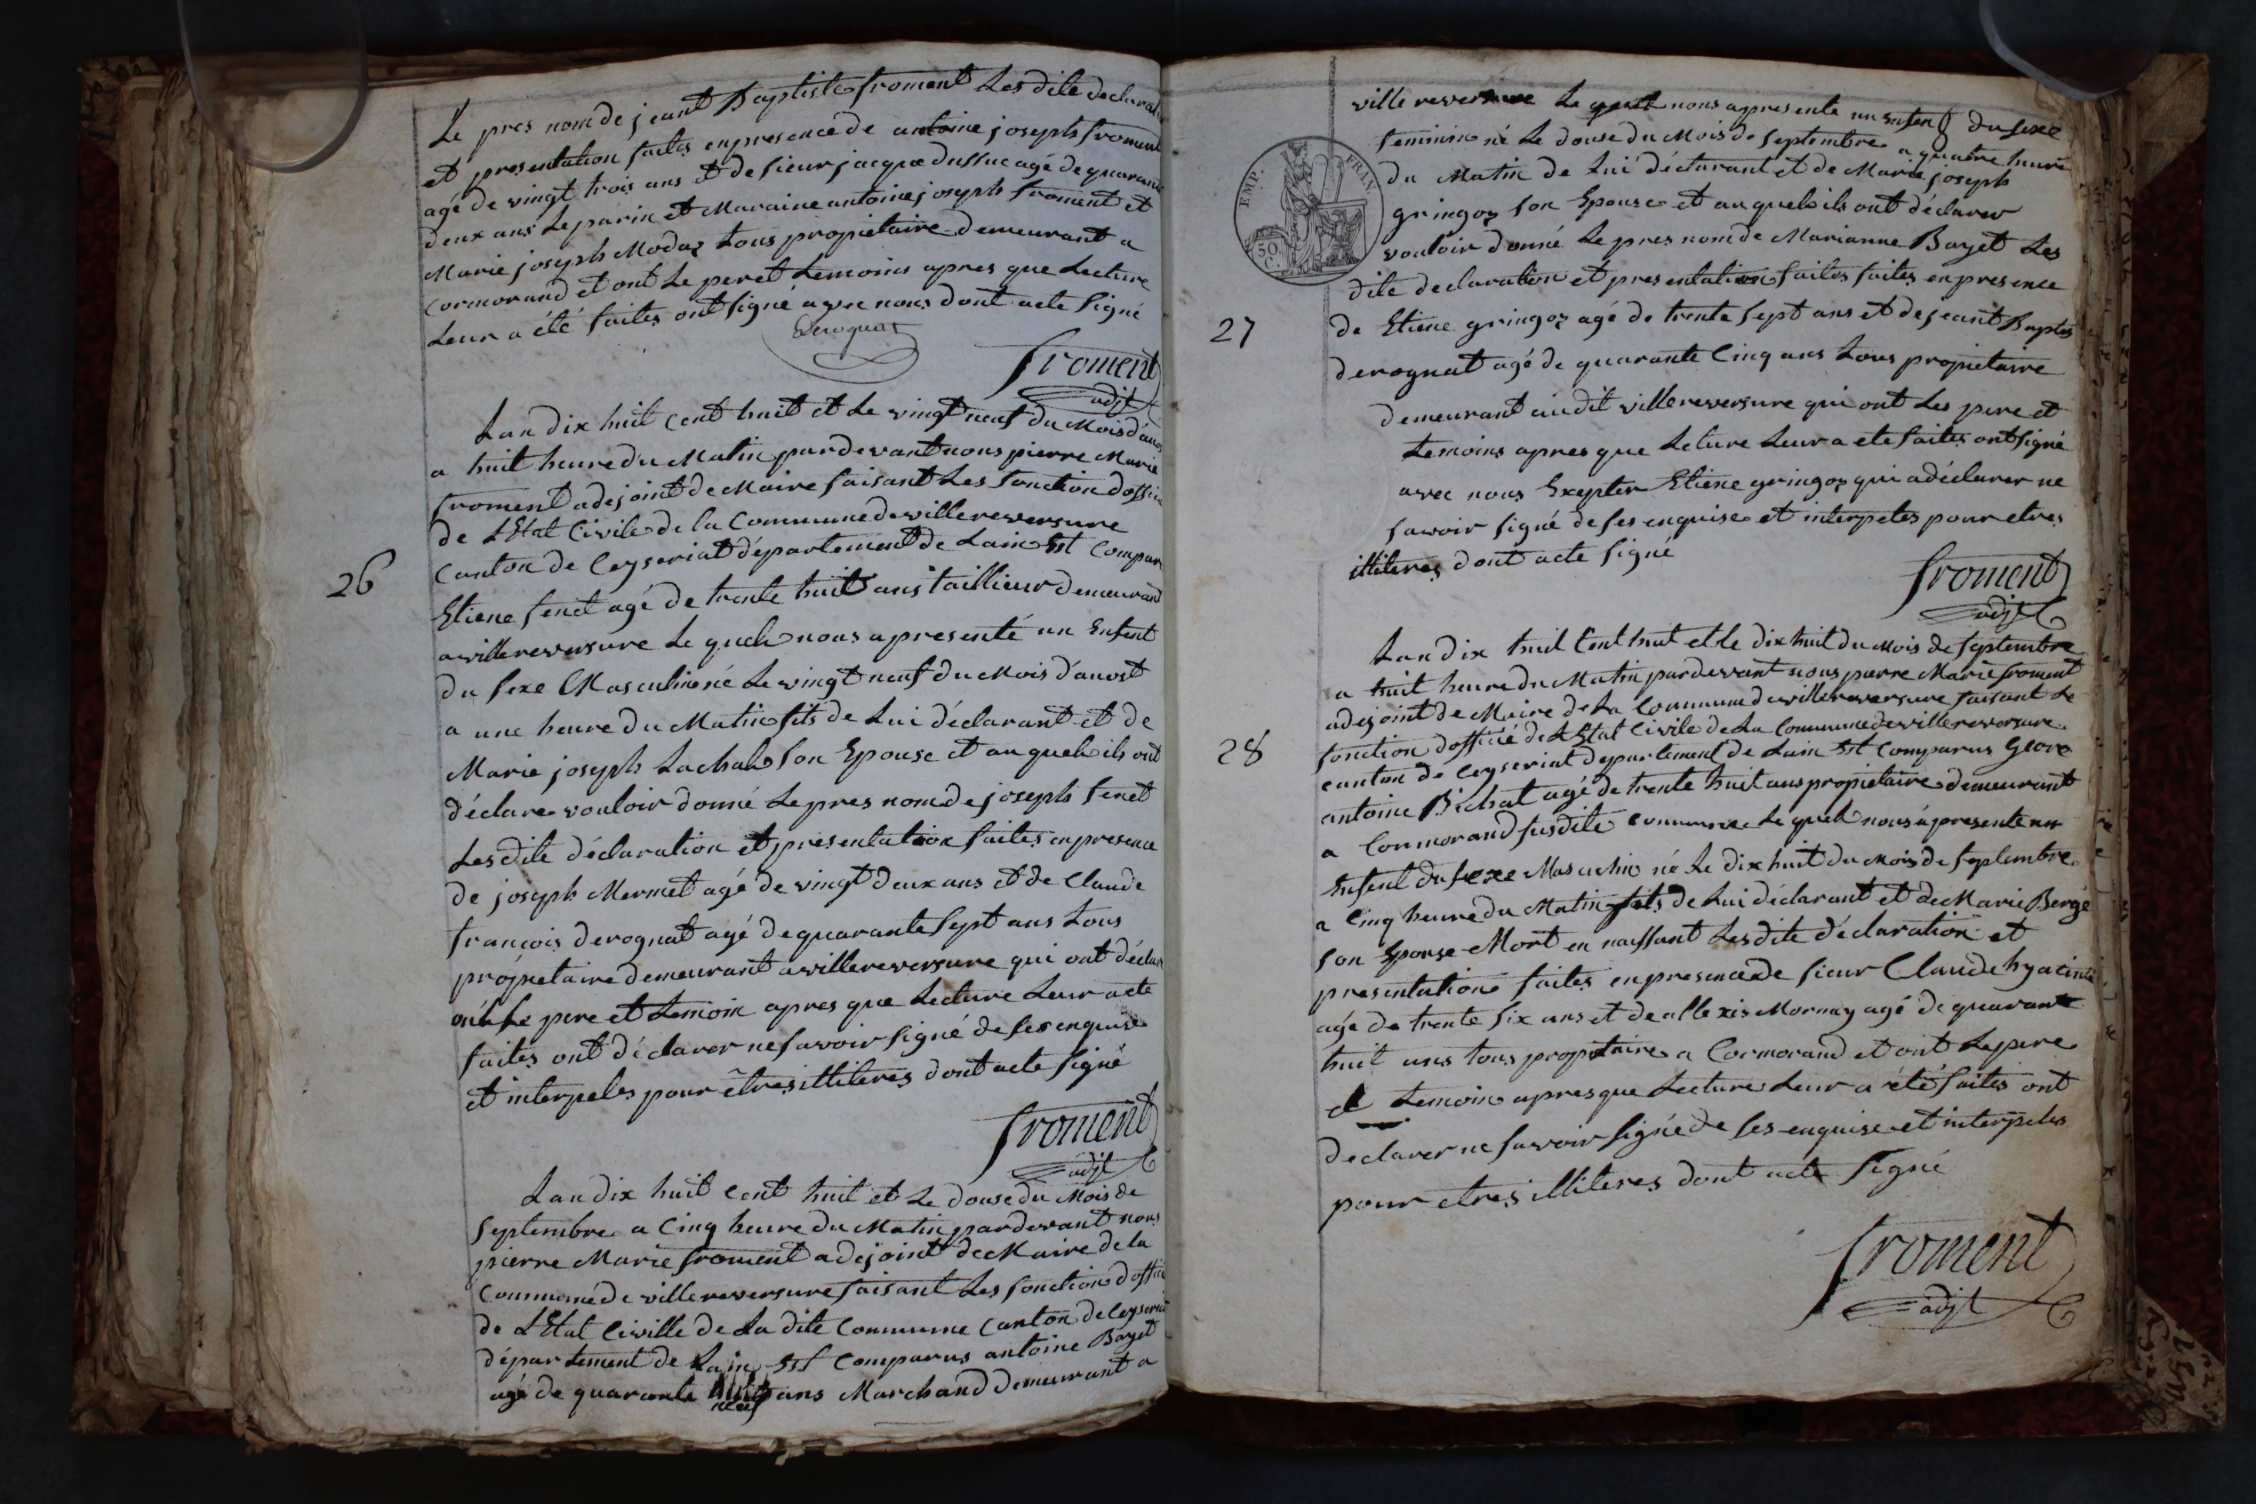 Le pres nom de jeant Baptiste froment Les dite declarati
et presentation faites en presence de antoine joseph froment
agé de vingt trois ans et de sieur jacque dussuc agé de quarante
deux ans Le parin et Maraine antoine joseph froment et
Marie joseph Modaz tous propietaire demeurant a
Cormorand et ont Le pere et temoins apres que Lecture
Leur a été faites ont signé avec nous dont acte signé
Derognat
froment
adjt
26
Lan dix huit cent huit et Le vingt neuf du Mois d'auos
a huit heure du Matin pardevant nous pierre Marie
froment adejoint de Maire faisant Les fonction doffici
de LEtat Civile de la Commune de villereversure
Canton de Ceyseriat département de Lain Est Compar
Etiene fenet agé de trente huit ans taillieur demeurant
a villereversure Le quel nous a presenté un Enfent
du sexe Masculin né Le vingt neuf du Mois d'auost
a une heure du Matin fils de Lui déclarant et de
Marie joseph Lachal son Epouse et au quel ils ont
déclare vouloir donné Le pres nom de joseph fenet
Les dite déclaration et presentation faites en presence
de joseph Mermet agé de vingt deux ans et de Claude
françois derognat agé de quarante sept ans tous
propietaire demeurant a villereversure qui ont déclar
pere et temoin apres que Lecture Leur a ete
faites ont déclarer ne savoir signé de ses enquise
et interpeles pour êtres illiteres dont acte signé
froment
adjt
Lan dix huit cent huit et Le douse du Mois de
septembre a Cinq heure du Matin pardevant nous
pierre Marie froment adejoint de Maire de la
Commune de villereversure faisant Les fonction doffici
de LEtat Civille de La dite Commune Canton de Ceyseria
département de Lain Est Comparus antoine Bayet
agé de quarante neuf ans Marchand demeurant a
EMP. FRAN.
50 C.
ville reversure Le quel nous a presente un enfent du sexe
feminin né Le douse du Mois de septembre a quatre heure
du Matin de Lui déclarant et de Marie joseph
gringoz son Epouse et au quels ils ont déclarer
vouloir donné Le pres nom de Marianne Bayet Les
dite declaration et presentation faites faites en presence
27
de Etiene gringoz agé de trente sept ans et de jeant Baptis
derognat agé de quarante Cinq ans tous propietaire
demeurant audit villereversure qui ont Les pere et
temoins apres que Leture Leur a ete faites ont signé
avec nous Exepter Etiene gringoz qui a déclarer ne
savoir signé de ses enquise et interpetes pour etres
illiteres dont acte signé
froment
adjt
Lan dix huit Cent huit et Le dix huit du Mois de septembre
a huit heure du Matin pardevant nous pierre Marie froment
adejoint de Maire de La Commune de villereversure faisant Le
fonction d'officié de LEtat Civile de La Commune de villereversure
28
canton de Ceyseriat departement de Lain Est Comparus
antoine Bichat agé de trente huit ans propietaire demeurant
a Cormorand susdite commune Le quel nous a presente un
Enfent du sexe Masculin né Le dix huit du Mois de septembre
a Cinq heure du Matin fils de Lui déclarant et de Marie Bergé
son Epouse Mort en naissant Les dite déclaration et
presentation faites en presence de sieur Claude hyacinte
agé de trente six ans et de allexis Mornay agé de quarante
huit ans tous propietaire a Cormorand et ont Le pere
et temoin apres que Lecture Leur a été faites ont
declarer ne savoir signé de ses enquise et interpeles
pour etres illiteres dont acte signé
froment
adjt